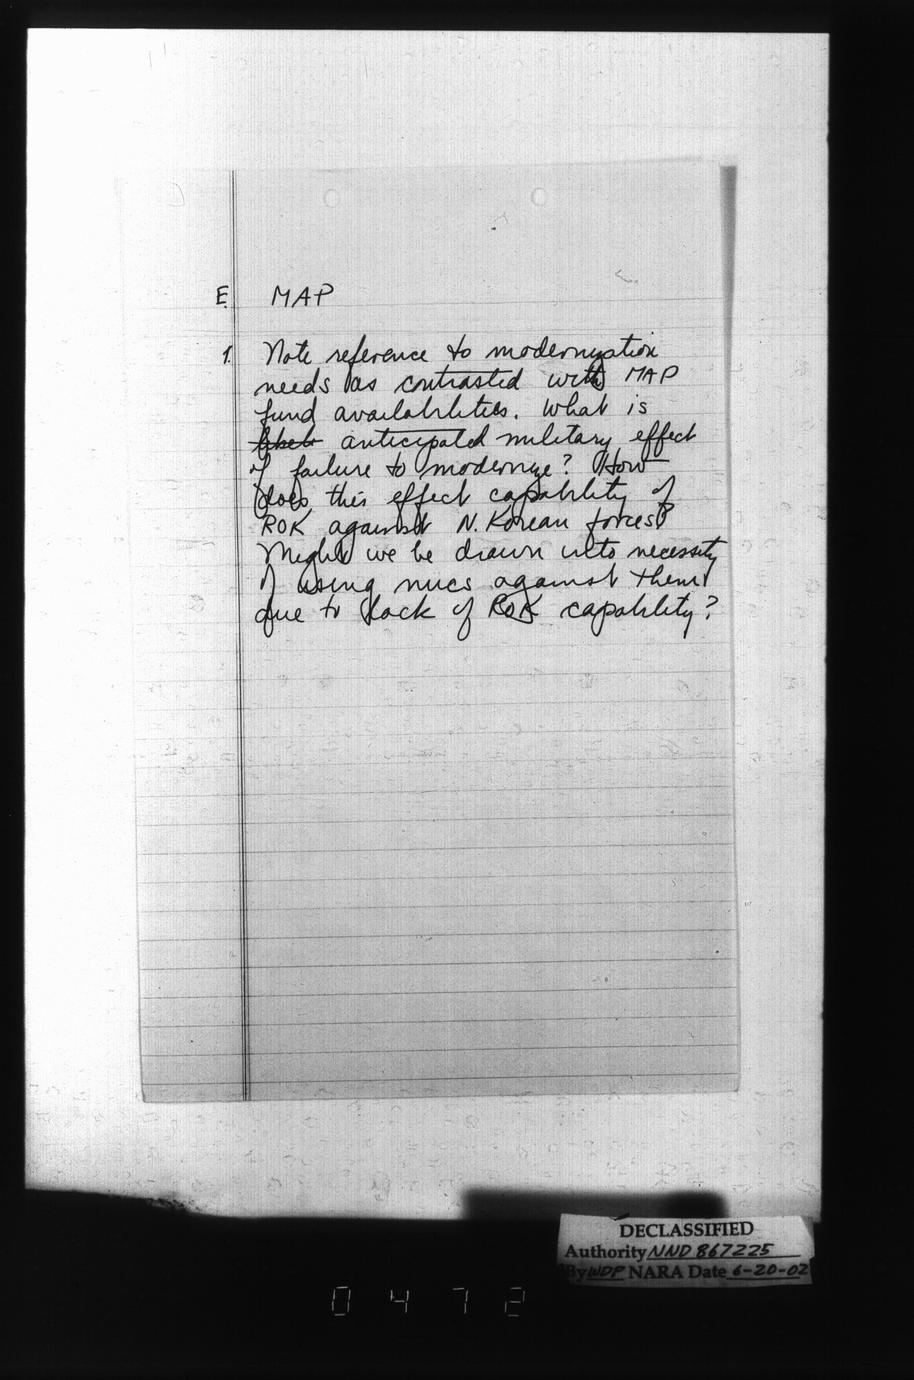 E. MAP
1. Note reference to modernization
needs as contrasted with MAP
fund availabilities. What is
anticipated military effect
of failure to modernize? How
does this effect capability of
ROK against N. Korean forces?
Might we be drawn into necessity
of using nucs against them
due to lack of ROK capability?
DECLASSIFIED
Authority NND 867225
By WDP NARA Date 6-20-02
0472